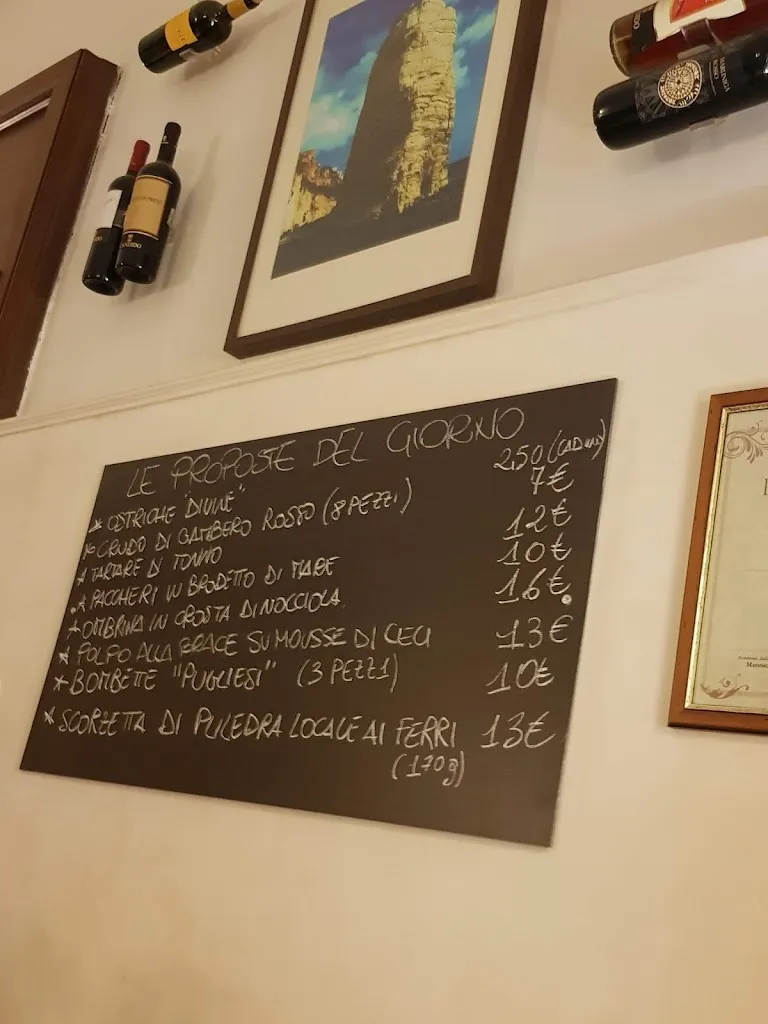 LE PROPOSTE DEL GIORNO
* OSTRICHE "DIVINE" 2,50 (CAD UNO)
* CRUDO DI GAMBERO ROSSO (8 PEZZI) 7€
* TARTARE DI TONNO 12€
* PACCHERI IN BRODETTO DI MARE 10€
* OMBRINA IN CROSTA DI NOCCIOLA 16€
* POLPO ALLA BRACE SU MOUSSE DI CECI 13€
* BOMBETTE "PUGLIESI" (3 PEZZI) 10€
* SCORZETTA DI PULEDRA LOCALE AI FERRI 13€
(170g)